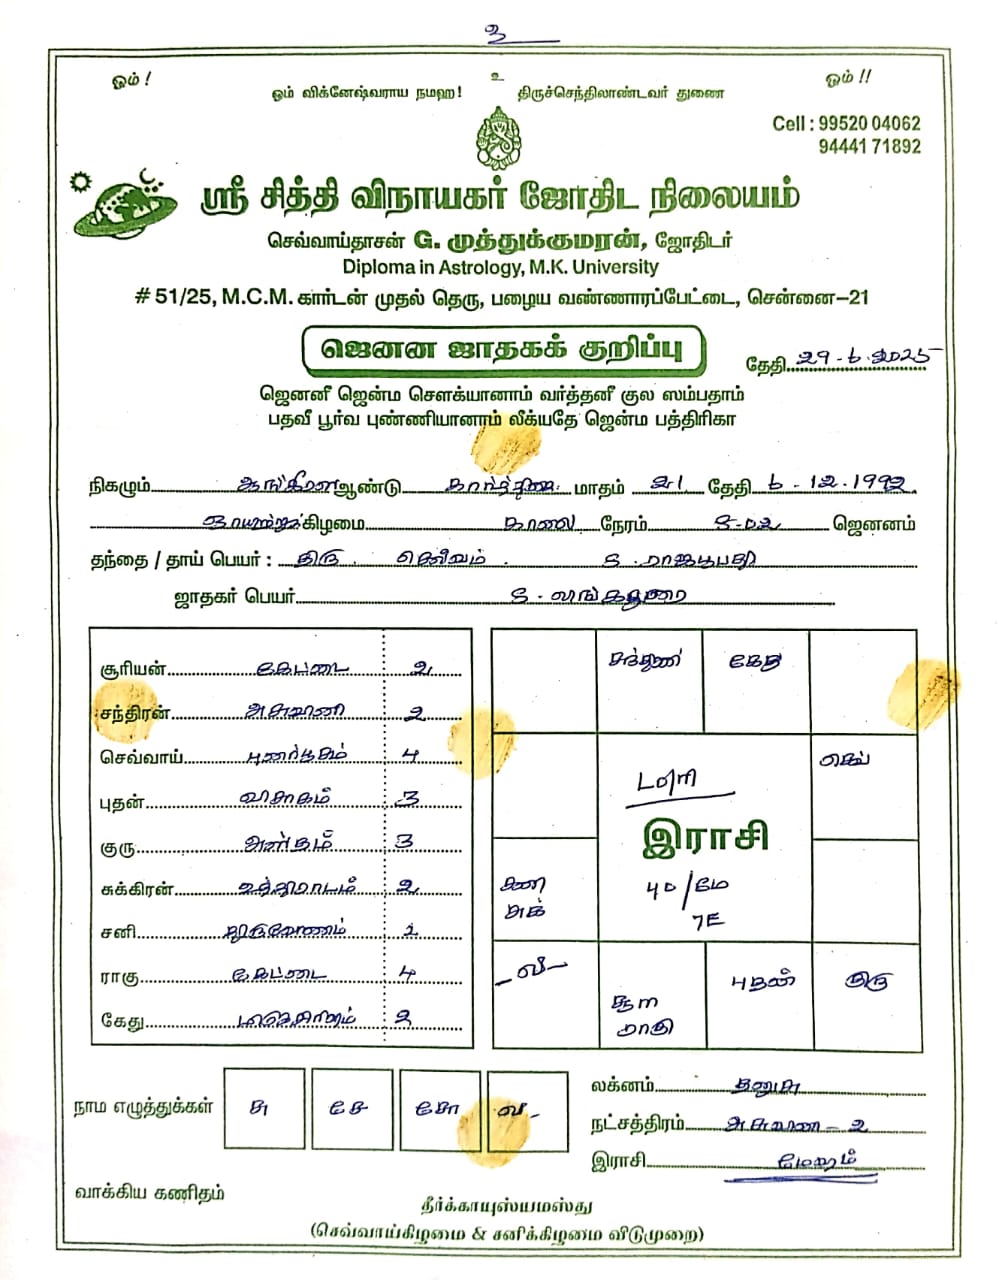 உ
ஓம் ! ஓம் !!
உ
ஓம் விக்னேஷ்வராய நமஹ! திருச்செந்திலாண்டவர் துணை
Cell : 99520 04062
94441 71892
ஸ்ரீ சித்தி விநாயகர் ஜோதிட நிலையம்
செவ்வாய்தாசன் G. முத்துக்குமரன், ஜோதிடர்
Diploma in Astrology, M.K. University
# 51/25, M.C.M. கார்டன் முதல் தெரு, பழைய வண்ணாரப்பேட்டை, சென்னை–21
ஜெனன ஜாதகக் குறிப்பு
தேதி 29-6-2025
ஜெனனீ ஜென்ம சௌக்யானாம் வர்த்தனீ குல ஸம்பதாம்
பதவீ பூர்வ புண்ணியானாம் லீக்யதே ஜென்ம பத்திரிகா
நிகழும் ஆங்கீரஸ ஆண்டு கார்த்திகை மாதம் 21 தேதி 6-12-1992
ஞாயிற்று கிழமை காலை நேரம் 8-02 ஜெனனம்
தந்தை / தாய் பெயர் : திரு. செல்வம். S.
ஜாதகர் பெயர் S.
சூரியன் கேட்டை 2
சந்திரன் அசுவனி 2
செவ்வாய் புனர்பூசம் 4
புதன் விசாகம் 3
குரு அஸ்தம் 3
சுக்கிரன் உத்திராடம் 2
சனி திருவோணம் 2
ராகு கேட்டை 4
கேது மிருகசீரிஷம் 2
சந்திரன் கேது
செவ்
இராசி
சனி
சுக்
ல
சூரி
ராகு
புதன் குரு
நாம எழுத்துக்கள் சு சே சோ ல
லக்னம் தனுசு
நட்சத்திரம் அசுவனி – 2
இராசி மேஷம்
வாக்கிய கணிதம்
தீர்க்காயுஸ்யமஸ்து
(செவ்வாய்கிழமை & சனிக்கிழமை விடுமுறை)